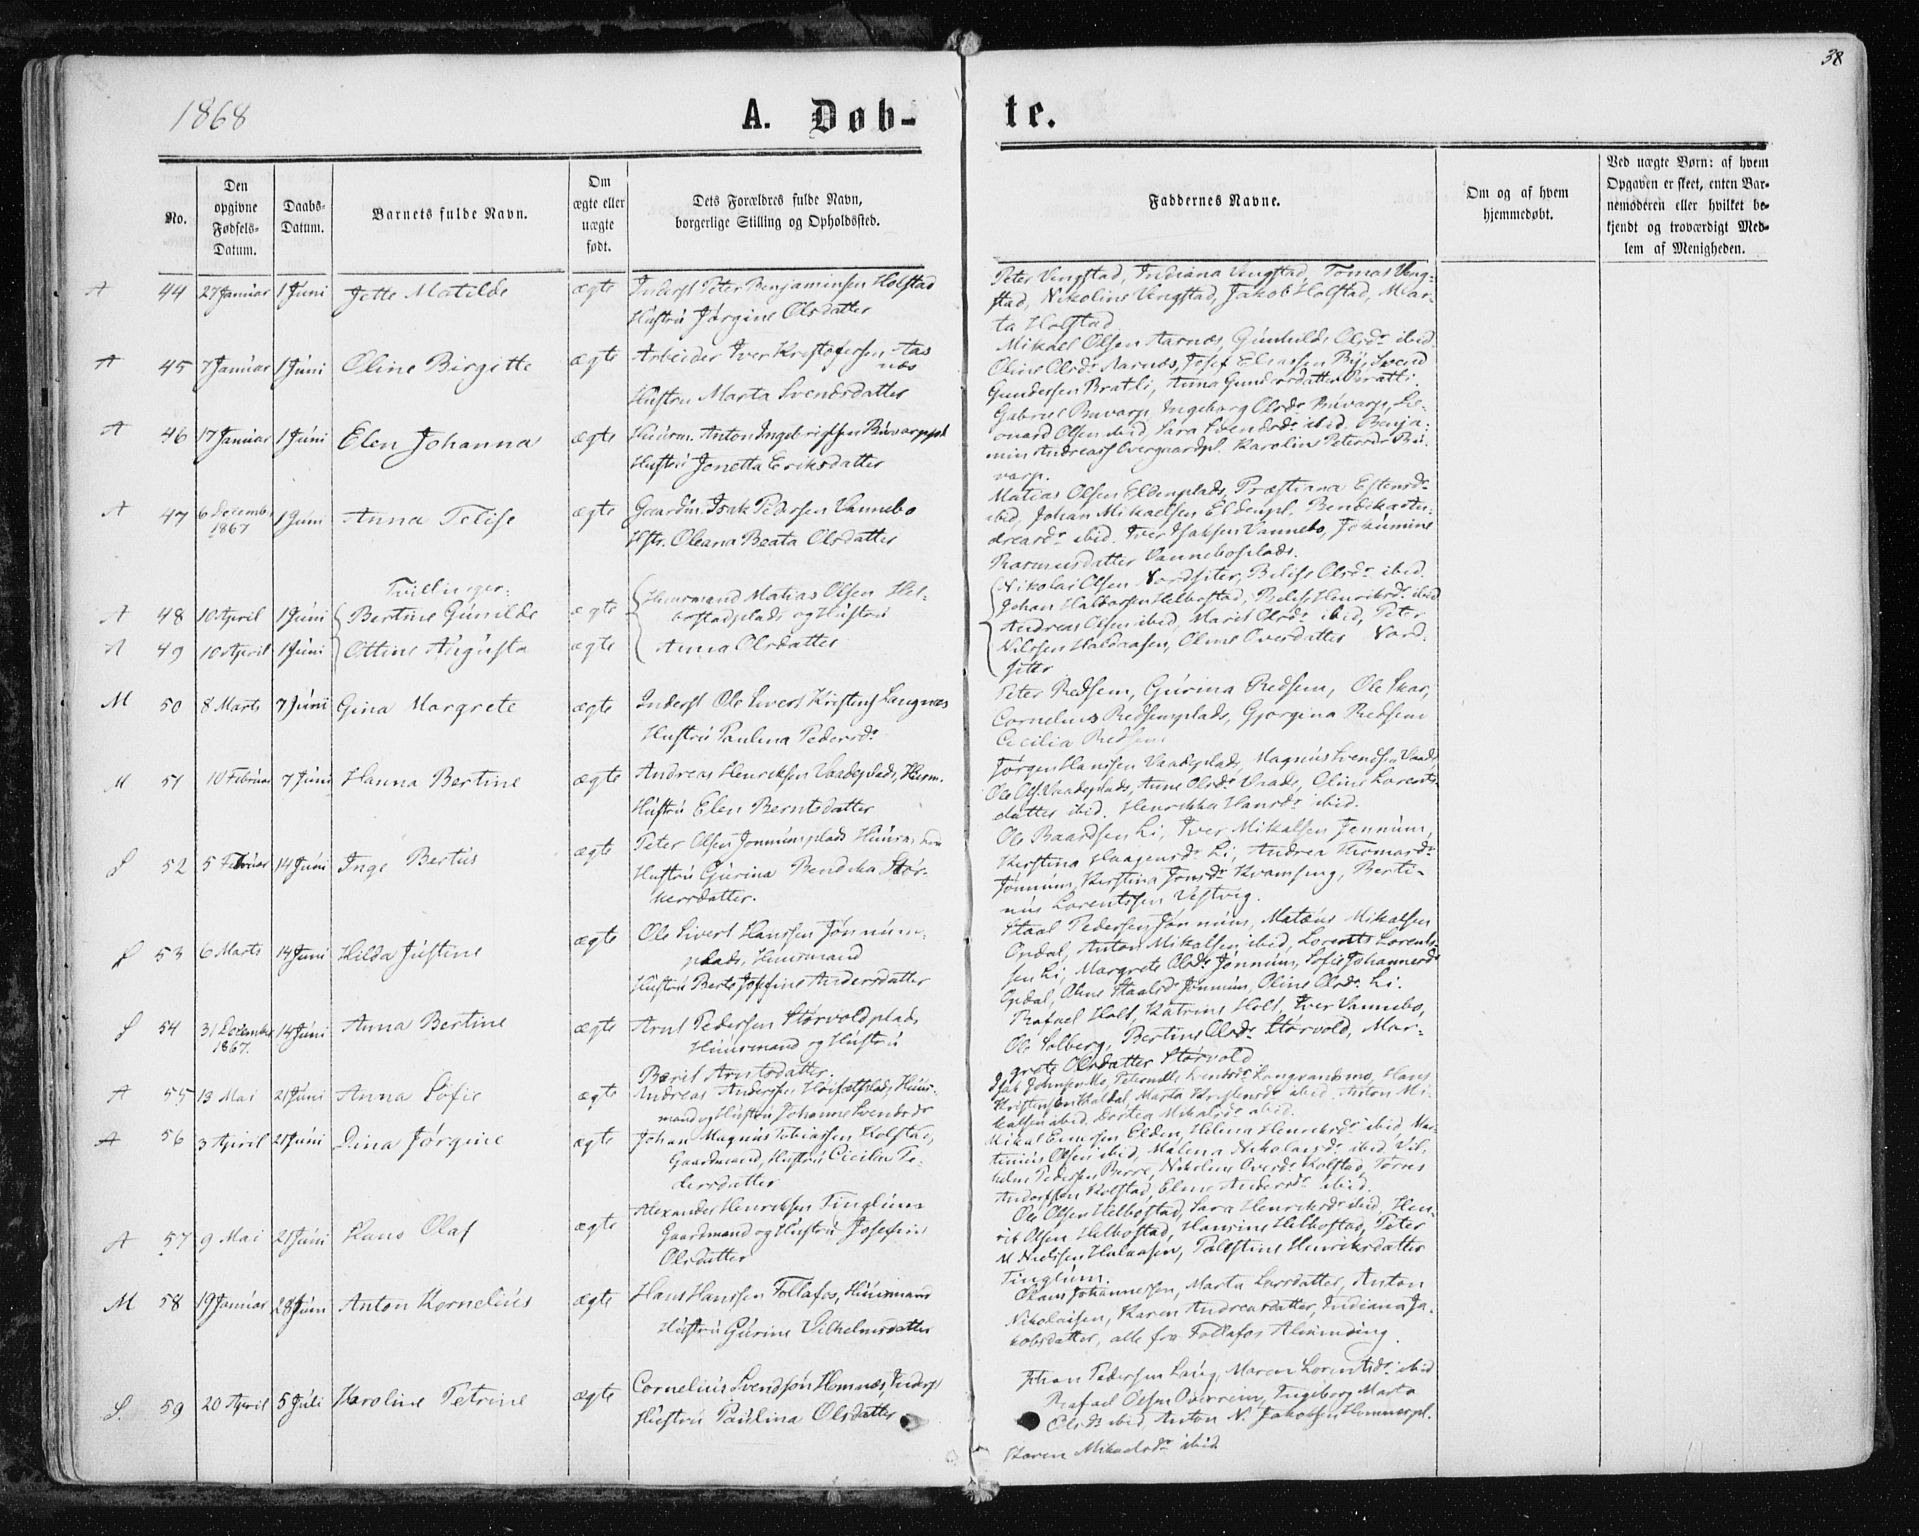 38
1868
A. Døb- te.
No.
Den opgivne Fødsels-Datum.
Daabs-Datum.
Barnets fulde Navn.
Om ægte eller uægte født.
Dets Forældres fulde Navn, borgerlige Stilling og Opholdssted.
Faddernes Navne.
Om og af hvem hjemmedøbt.
Ved uægte Børn: af hvem Opgaven er skeet, enten Barnemoderen eller hvilket bekjendt og troværdigt Medlem af Menigheden.
A 44 27 Januar 1 Juni Jette Matilde ægte Inderst Peter Benjaminsen Holstad
Hustru Jørgine Olsdatter
Peter Vengstad, Indiana Vengstad, Tomas Veng-
stad, Nikoline Vengstad, Jakob Holstad, Mar-
ta Holstad
A 45 7 Januar 1 Juni Oline Birgitte ægte Arbeider Iver Kristofersen Aas
næs
Hustru Marta Svendsdatter
Mikael Olsen Aarnæs, Gunhild Olsdr ibid
Oline Olsdr Aarnæs, Josef Eliassen By, Svend
Gundersen Bratli, Anna Gundersdatter Bratli.
A 46 17 Januar 1 Juni Elen Johanna ægte Huusm. Anton Ingebrigtsen Buvarppl
Hustru Jonetta Eriksdatter
Gabriel Buvarp, Ingeborg Olsdr Buvarp, Le-
onard Olsen ibid, Sara Svendsdr ibid, Benja-
min Andreass Overgaardpl. Karolin Petersdr Bu-
varp.
A 47 6 December 1867 1 Juni Anna Telise ægte Gaardm. Isak Pedersen Vannebo
Hstr. Oleana Beata Olsdatter
Matias Olsen Eldenplads, Præstiana Estensdr
ibid, Johan Mikaelsen Eldenpl. Bendika An-
dreasdr ibid. Iver Isaksen Vannebo, Johannine
Rasmusdatter Vannebosplads.
Tvillinger:
A 48 10 April 1 Juni Bertine Gunilde ægte Huusmand Matias Olsen Hel-
bostadplads og Hustru
A 49 10 April 1 Juni Ottine Augusta ægte Anna Olsdatter
Nikolai Olsen Nordseter, Belise Olsdr ibid.
Johan Haldorsen Helbostad, Belise Henriksdr ibid
Andreas Olsen ibid, Marit Olsdr ibid, Peter
Nilssen Haldaasen, Oline Oversdatter Nord-
seter
M 50 8 Marts 7 Juni Gina Margrete ægte Inderst Ole Sivert Kristens Langnæs
Hustru Paulina Pedersdr
Peter Redsem, Gurina Redsem, Ole Skar,
Cornelius Redsemplads, Gjorgina Redsem
Cecilia Redsem
M 51 10 Februar 7 Juni Hanna Bertine ægte Andreas Henriksen Vaadeplads, Husm.
Hustru Elen Berntsdatter
Jørgen Hanssen Vaadeplads, Magnus Svendsen Vaad,
Ole Ols. Vaadeplads, Anne Olsdr Vaade, Oline Lorents-
datter ibid. Henrikka Hansdr ibid.
S 52 5 Februar 14 Juni Inge Bertus ægte Peter Olsen Jønnumplads Huusmand
Hustru Gurina Bendika Stør-
kersdatter.
Ole Baardsen Li, Iver Mikalsen Jønnum,
Kirstina Haagensdr Li, Andrea Thomasdr
Jønnum, Kirstina Jensdr Kvamseng, Berti-
nus Lorentssen Vestvig.
S 53 6 Marts 14 Juni Hilda Justine ægte Ole Sivert Hanssen Jønnum-
plads, Huusmand
Hustru Berte Josfine Andersdatter
Staal Pedersen Jønnum, Matæus Mikalsen
Opdal, Anton Mikalsen ibid, Lorents Lorents-
sen Li, Margrete Olsdr Jønnum, Sofie Johannesdr
Opdal, Oline Staalsdr Jønnum, Oline Olsdr Li.
S 54 31 December 1867. 14 Juni Anna Bertine ægte Arnt Pedersen Størvoldplads
Huusmand og Hustru
Berit Arntsdatter.
Rafael Holt, Katrine Holt, Iver Vannebo,
Ole Solberg, Bertine Olsdr Størvold, Mar-
grete Olsdatter Størvold
A 55 13 Mai 21 Juni Anna Sofie ægte Andreas Andersen Hoiseetplads, Huus-
mand og Hustru Johanne Svendsdr
Isak Johnsen Mo, Peternelle Svendsdr Langrandsmo, Hans
Kristensen Haldal, Marta Kristensdr ibid. Anton Mi-
kalsen ibid, Dortea Mikalsdr ibid.
A 56 3 April 21 Juni Dina Jørgine ægte Johan Magnus Tobiassen Kolstad,
Gaardmand, Hustru Cicilia Pe-
dersdatter
Mikal Ennssen Elden, Helena Henriksdr ibid, Mar-
tinus Olsen ibid, Malena Nikolaisdr ibid, Vil-
helm Pedersen Berre, Nikoline Oversdr Kolstad, Tørris
Andorssen Kolstad, Eline Andersdr ibid.
A 57 9 Mai 21 Juni Hans Olaf ægte Alexander Henriksen Tinglum
Gaardmand og Hustru Josefine
Olsdatter
Ole Olsen Helbostad, Sara Henriksdr ibid, Hen-
rik Olsen Helbostad, Hansine Helbostad, Peter
M Nielsen Halaasen, Palestine Henriksdatter
Tinglum.
M 58 19 Januar 28 Juni Anton Kornelius ægte Hans Hanssen Follafos, Huusmand
Hustru Gurine Vilhelmsdatter
Olaus Johannessen, Marta Larsdatter, Anton
Nikolaisen, Karen Andreasdatter, Indiana Ja-
kobsdatter, alle fra Follafos Alminding.
S. 59 20 April 5 Juli Karoline Petrine ægte Cornelius Svendsøn Hemnæs, Inderst
Hustru Paulina Olsdatter
Johan Pedersen Laug, Maren Lorentsdr ibid
Rafael Olsen Overrein, Ingeborg Marta
Olsdr ibid Anton N. Jakobsen Hemnespl.
Karen Mikaelsdr ibid